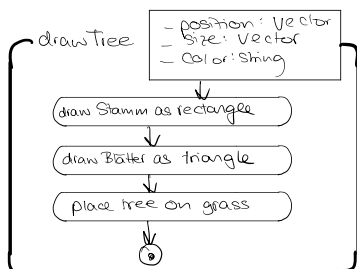 drawTree
- position: Vector
- size: Vector
- Color: String
draw Stamm as rectangle
draw Blätter as triangle
place tree on grass